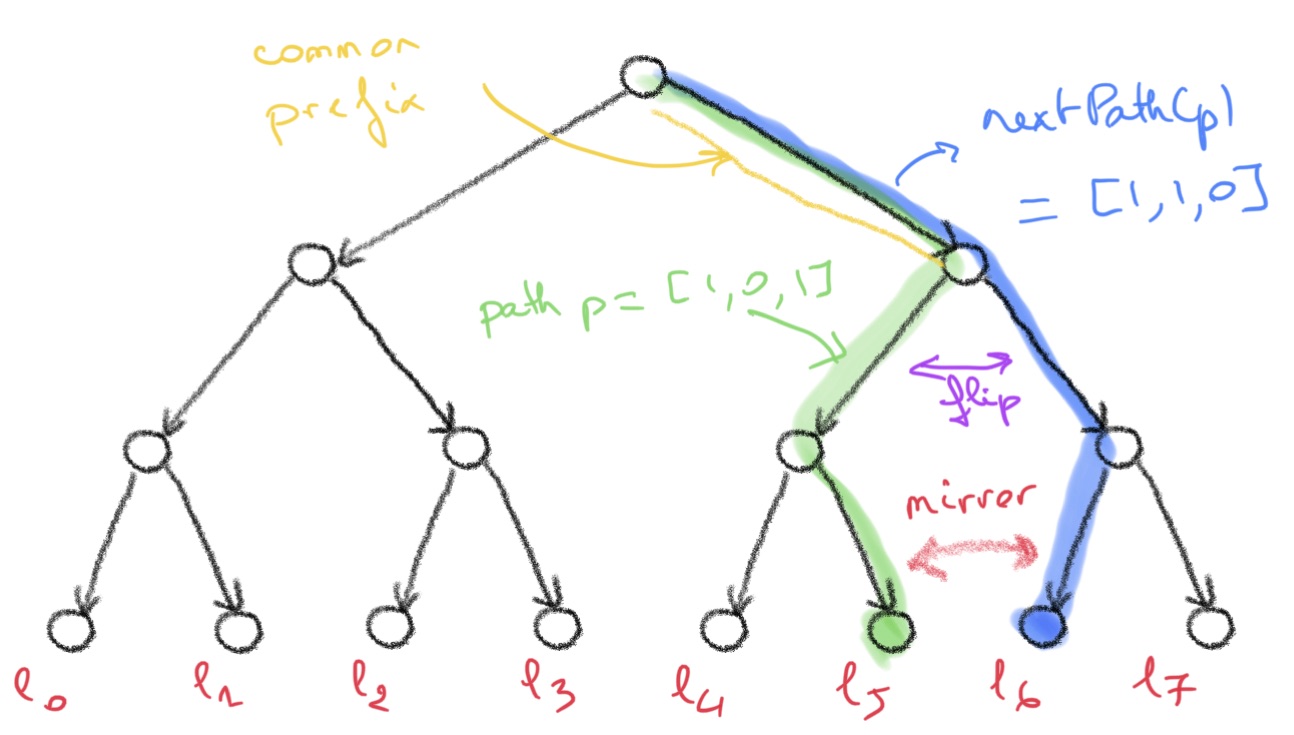 common
prefix
nextPath(p)
= [1,1,0]
path p = [1,0,1]
flip
mirror
l0
l1
l2
l3
l4
l5
l6
l7